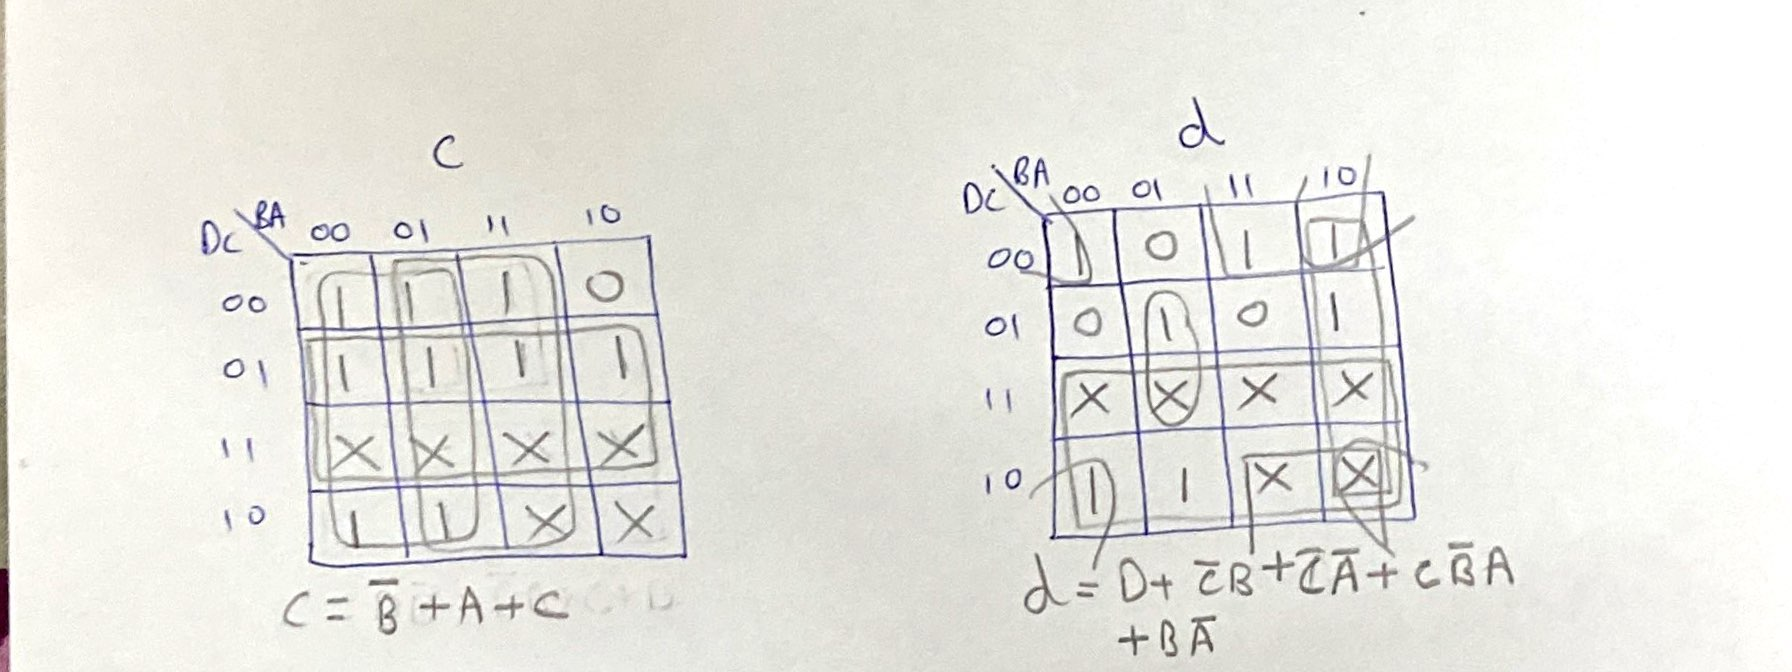 c
DC BA 00 01 11 10
00 1 1 1 0
01 1 1 1 1
11 X X X X
10 1 1 X X
C = B̅ + A + C
d
DC BA 00 01 11 10
00 1 0 1 1
01 0 1 0 1
11 X X X X
10 1 1 X X
d = D + C̅B + C̅A̅ + CB̅A
+ BA̅